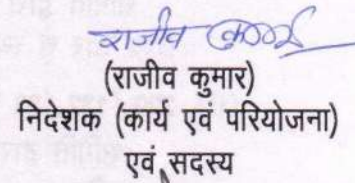 राजीव कुमार
(राजीव कुमार)
निदेशक (कार्य एवं परियोजना)
एवं सदस्य